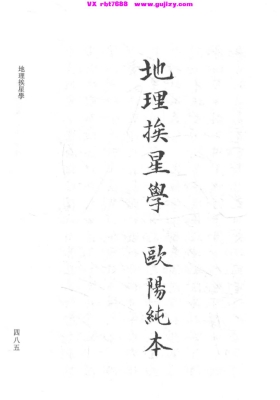 VX rbt7688  www.gujizy.com
地理挨星學 歐陽純本
地理挨星學
四八五